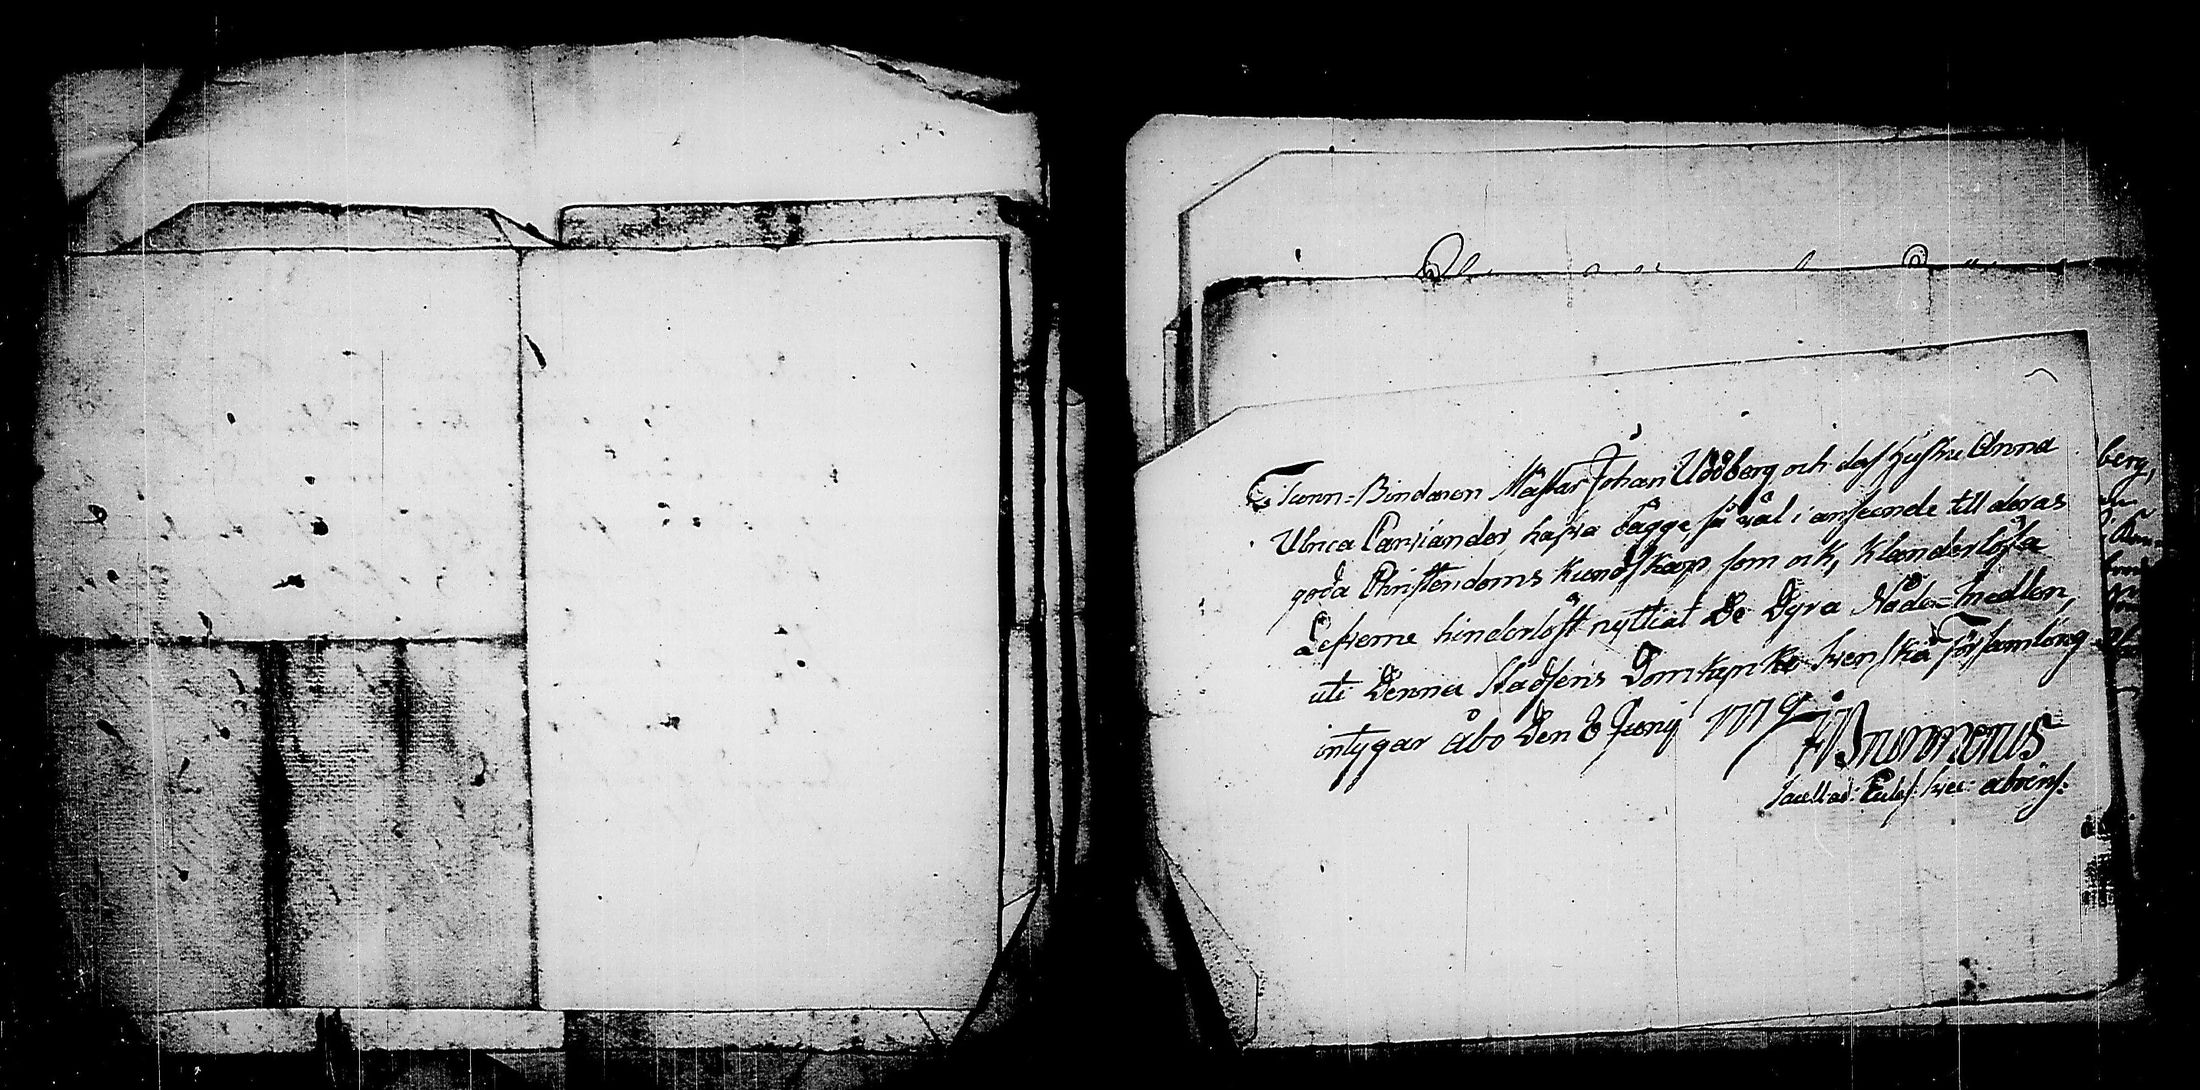 Tunn-Bindaren Mästar Johan Uddberg och dess hustru Anna
Ulrica Carviander hafva bägge, så väl i anseende till deras
goda Christendoms kundskap som ock, klanderlösa
Lefverne hinderlöst nyttiat De Dyra Nåde-medlen,
uti Denna Stadsens Domkyrko Svenska församling
intygar Åbo Den 8 Junij 1779
Brunnerus
Sacell: ad: Eccles: svec: aboens:
berg,